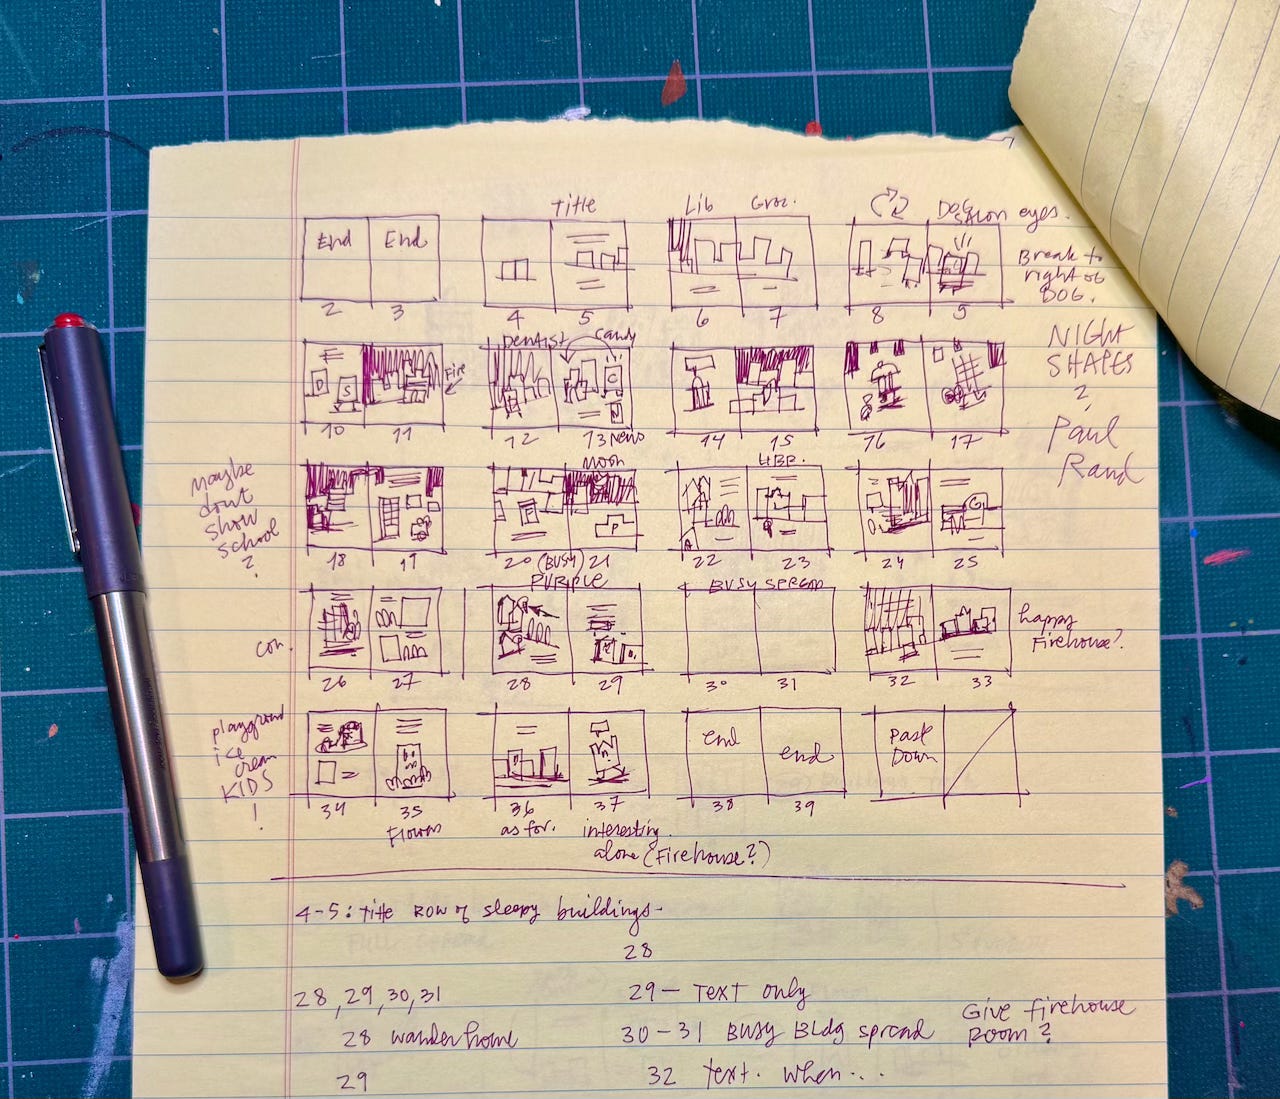 Title Lib Groc. DOG SALON eyes.
End End
Break to
right of
DOG.
2 3 4 5 6 7 8 9
Dentist Candy
NIGHT
SHAPES
?
Paul
Rand
D S Fire C
10 11 12 13 News 14 15 16 17
Moon LIBR.
Maybe
dont
show
school
?
P G
A
18 19 20 (BUSY) 21 22 23 24 25
PURPLE BUSY SPREAD
con.
happy
Firehouse?
26 27 28 29 30 31 32 33
playground
ice
cream
KIDS
!
end end Past
Down
34 35 36 37 38 39
Flowers as for. interesting.
alone (Firehouse?)
4-5: title Row of sleepy buildings.
28
28, 29, 30, 31 29 – Text only
Give firehouse
room?
28 wander home 30-31 Busy Bldg spread
29 32 text. when...